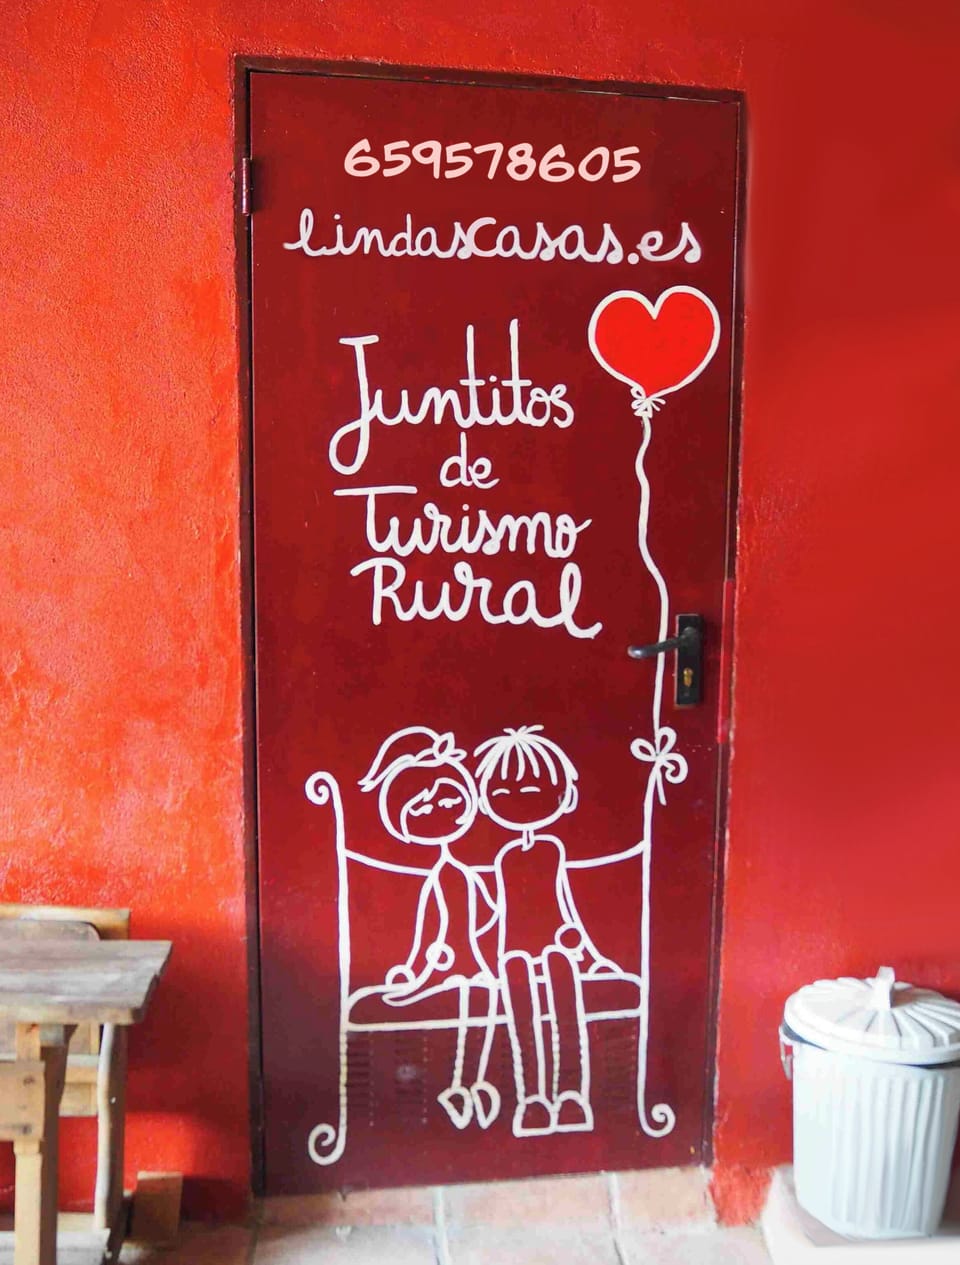 659578605
lindascasas.es
Juntitos
de
Turismo
Rural